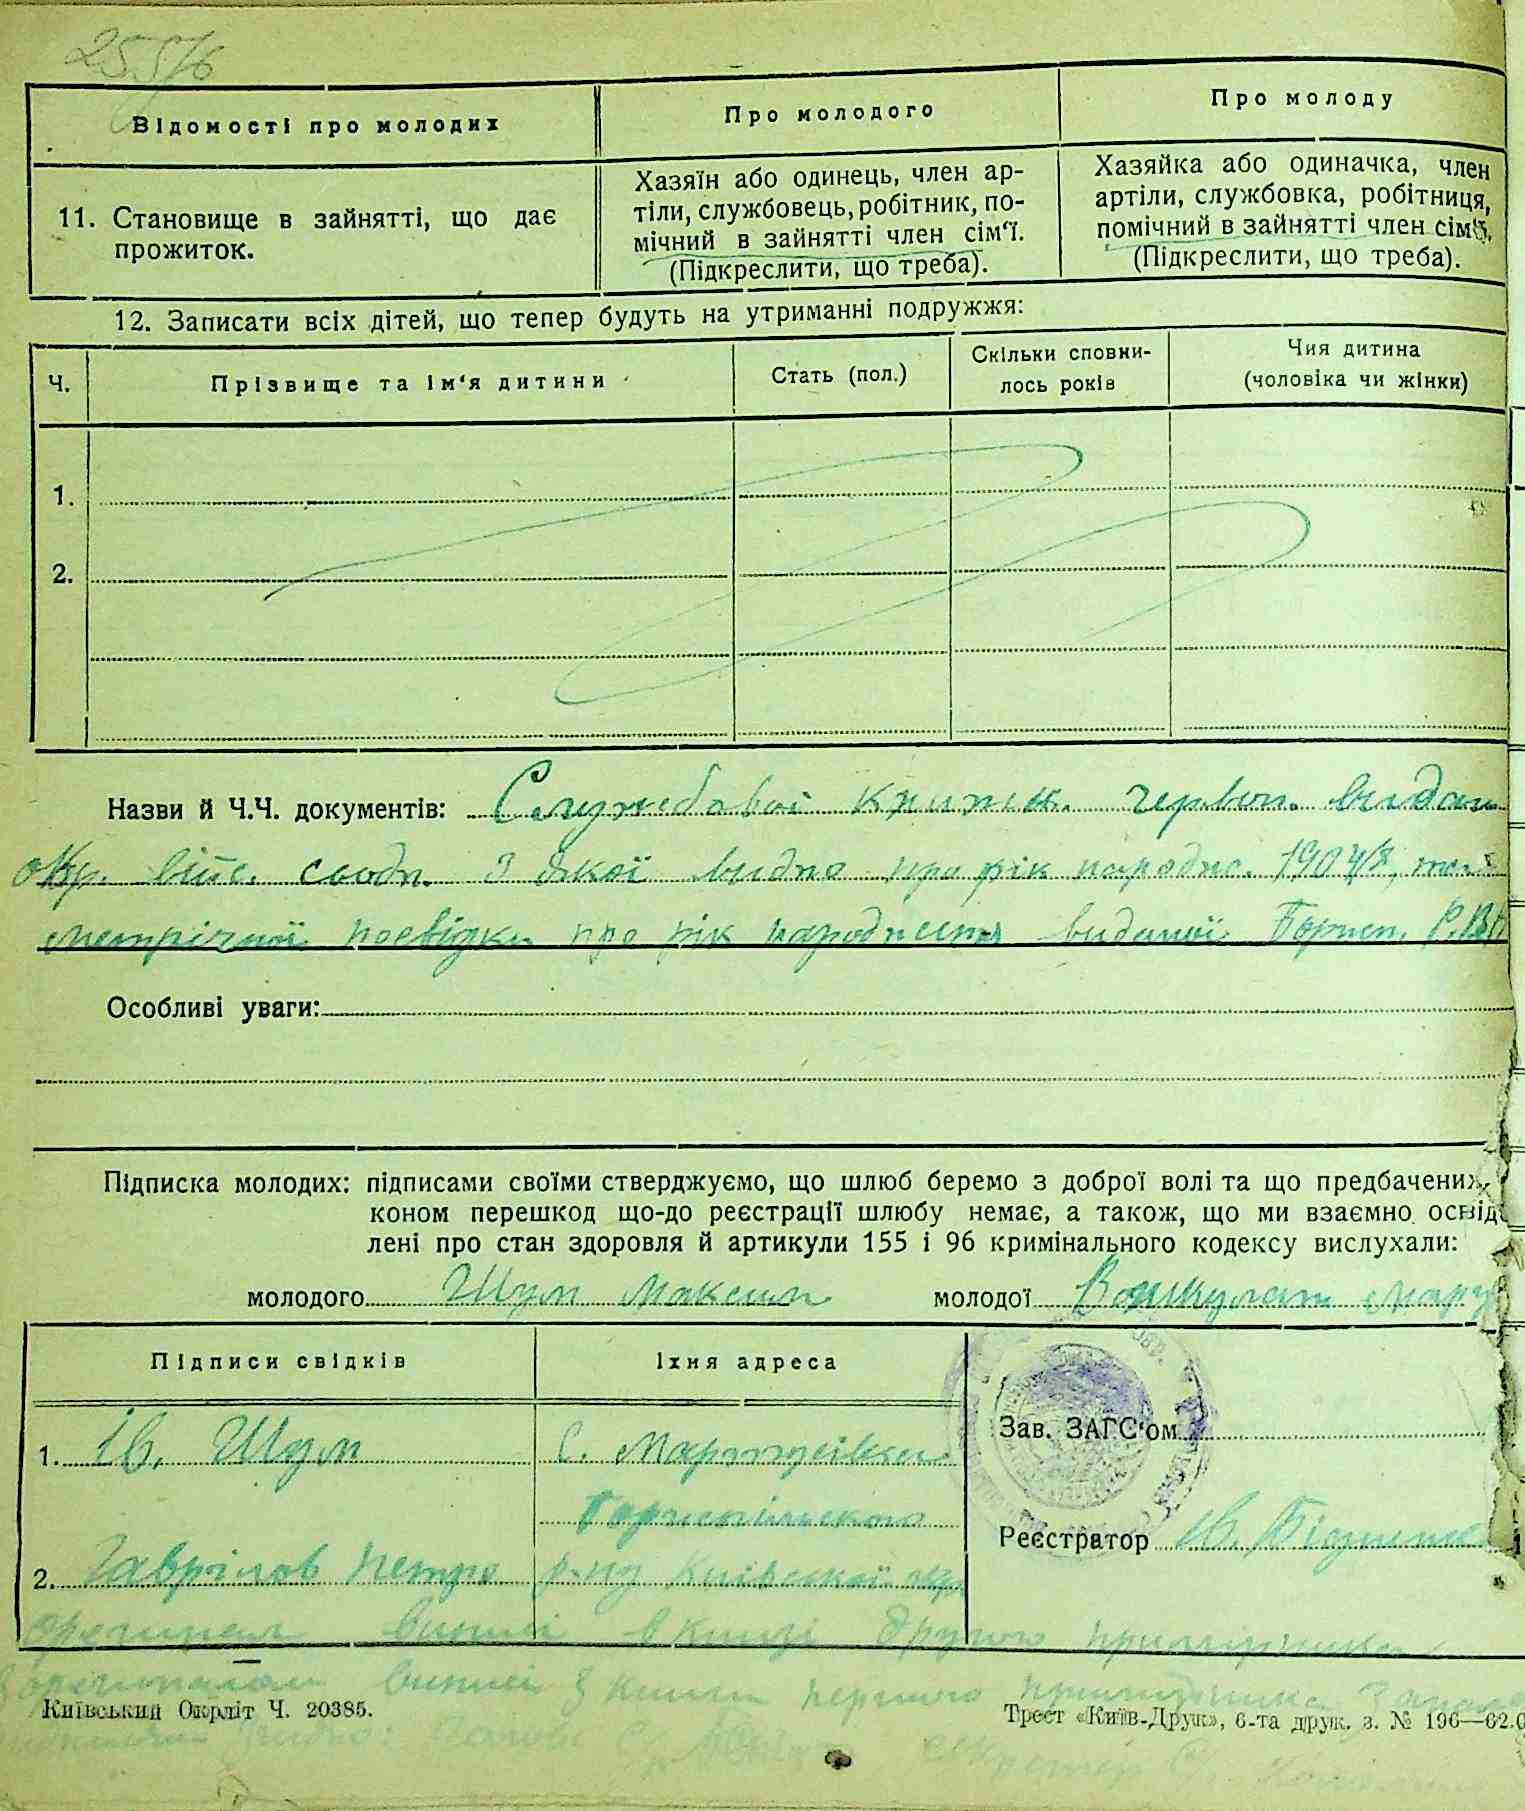 255/6
Відомості про молодих
Про молодого
Про молоду
11. Становище в зайнятті, що дає прожиток.
Хазяїн або одинець, член ар-
тіли, службовець, робітник, по-
мічний в зайнятті член сім'ї.
(Підкреслити, що треба).
Хазяйка або одиначка, член
артіли, службовка, робітниця,
помічний в зайнятті член сім'ї.
(Підкреслити, що треба).
12. Записати всіх дітей, що тепер будуть на утриманні подружжя:
Ч.
Прізвище та ім'я дитини
Стать (пол.)
Скільки сповни-
лось років
Чия дитина
(чоловіка чи жінки)
1.
2.
Назви й Ч.Ч. документів: Службової книжк. червон. видан
окр. війс. з якої видно про рік народж. 1904
метричної посвідки про рік народження виданої Борисп. Р.В.
Особливі уваги:
Підписка молодих: підписами своїми стверджуємо, що шлюб беремо з доброї волі та що предбачених
коном перешкод що-до реєстрації шлюбу немає, а також, що ми взаємно освід
лені про стан здоров'я й артикули 155 і 96 кримінального кодексу вислухали:
молодого Шум Максим молодої
Підписи свідків
Їхня адреса
1. Ів. Шум
С. Мартусівка
Бориспільского
2. Гаврілов Петро
р-ну Київської окр
Зав. ЗАГС'ом
Реєстратор Ів.
в книзі другого примірника
з книги першого примірника
Київський Окрліт Ч. 20385.
Трест «Київ-Друк», 6-та друк. з. № 196—62.0